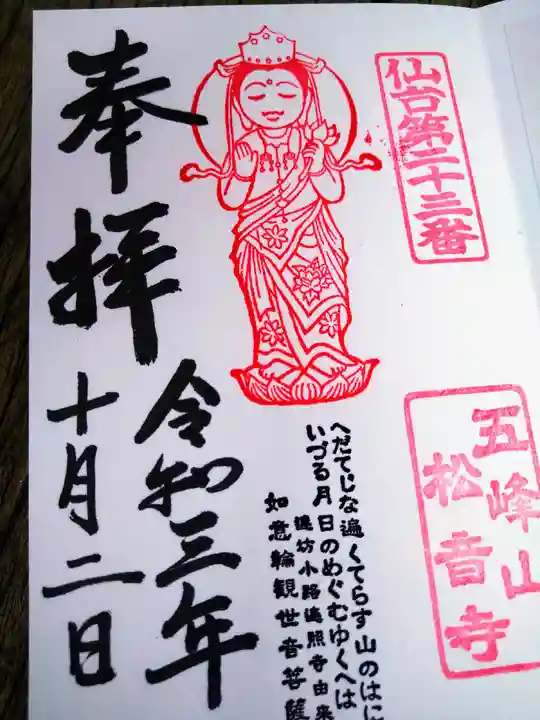 仙台第二十三番
五峰山
松音寺
へだてじな遍くてらす山のはに
いづる月日のめぐむゆくへは
穏坊小路遍照寺由来
如意輪観世音菩薩
奉拝
令和三年
十月二日